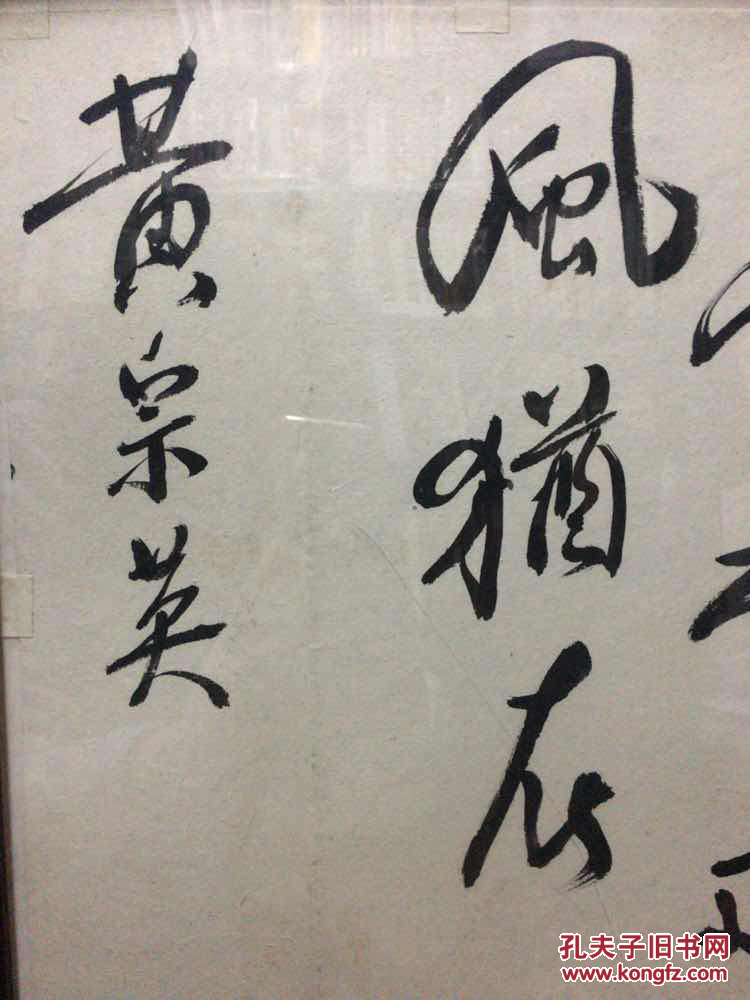 風猶在
黄宗英
孔夫子旧书网
www.kongfz.com